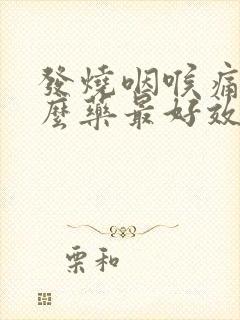 發燒咽喉痛
麼藥最好效
栗和